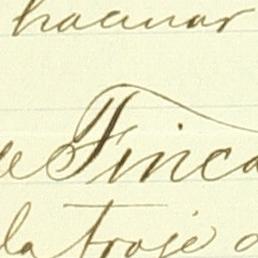 hacinar
de Finca
la troje d